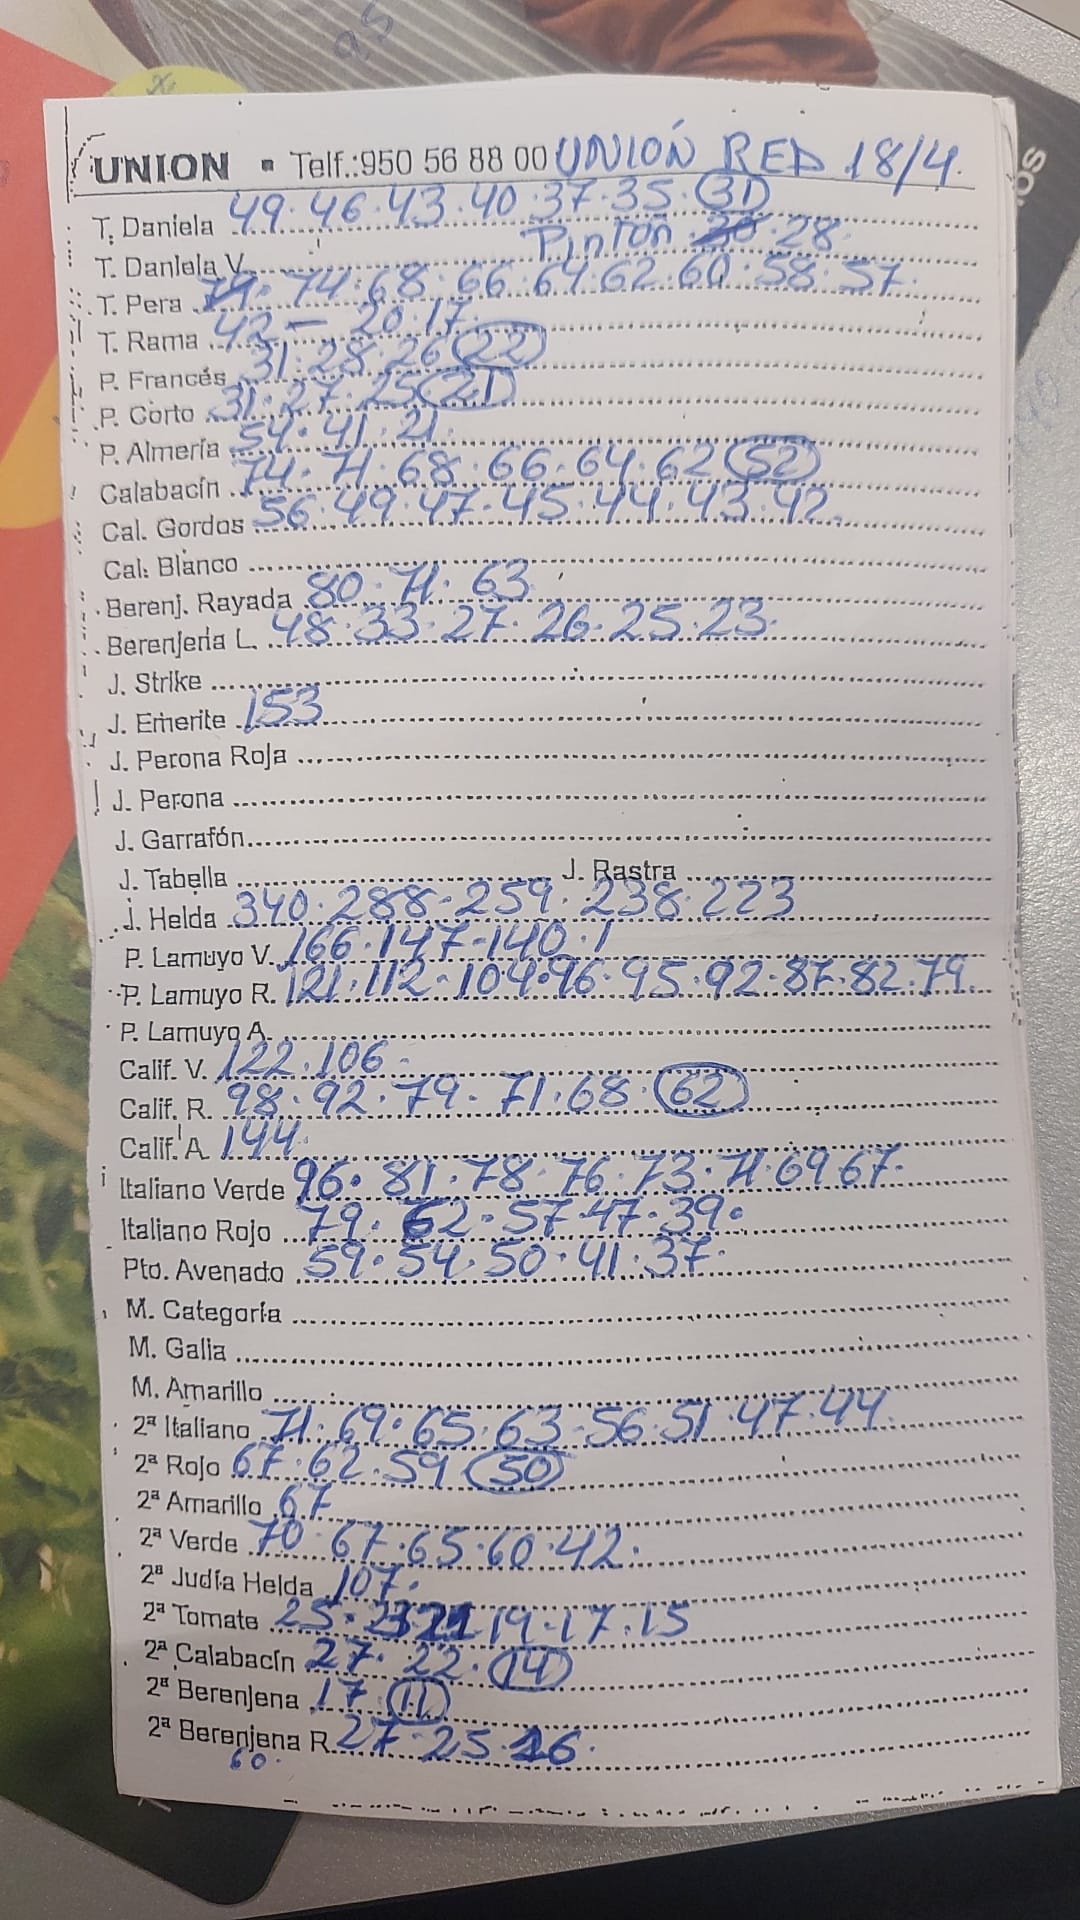 UNION ▪ Telf.:950 56 88 00 UNIÓN RED 18/4.
T. Daniela 49·46·43·40·37·35·(31)
T. Daniela V. Pintón 28
T. Pera 74·68·66·64·62·60·58·57·
T. Rama 42 — 20·17·
P. Francés 31·28·26 (22)
P. Corto 31·27·25 (21)
P. Almería 54·41·21·
Calabacín 74·71·68·66·64·62 (52)
Cal. Gordos 56·49·47·45·44·43·42
Cal. Blanco
Berenj. Rayada 80·71·63
Berenjena L. 48·33·27·26·25·23·
J. Strike
J. Emerite 153
J. Perona Roja
J. Perona
J. Garrafón
J. Tabella J. Rastra
J. Helda 340·288·259·238·223
P. Lamuyo V. 166·147·140·1
P. Lamuyo R. 121·112·104·96·95·92·87·82·79
P. Lamuyo A.
Calif. V. 122·106
Calif. R. 98·92·79·71·68·(62)
Calif. A. 144
Italiano Verde 96·81·78·76·73·71·69·67·
Italiano Rojo 79·62·57·47·39·
Pto. Avenado 59·54·50·41·37·
M. Categoría
M. Galia
M. Amarillo
2ª Italiano 71·69·65·63·56·51·47·44
2ª Rojo 67·62·59 (50)
2ª Amarillo 67
2ª Verde 70·67·65·60·42·
2ª Judía Helda 107·
2ª Tomate 25· 19·17·15
2ª Calabacín 27·22·(14)
2ª Berenjena 17 (11)
2ª Berenjena R. 27·25·16·
60
95